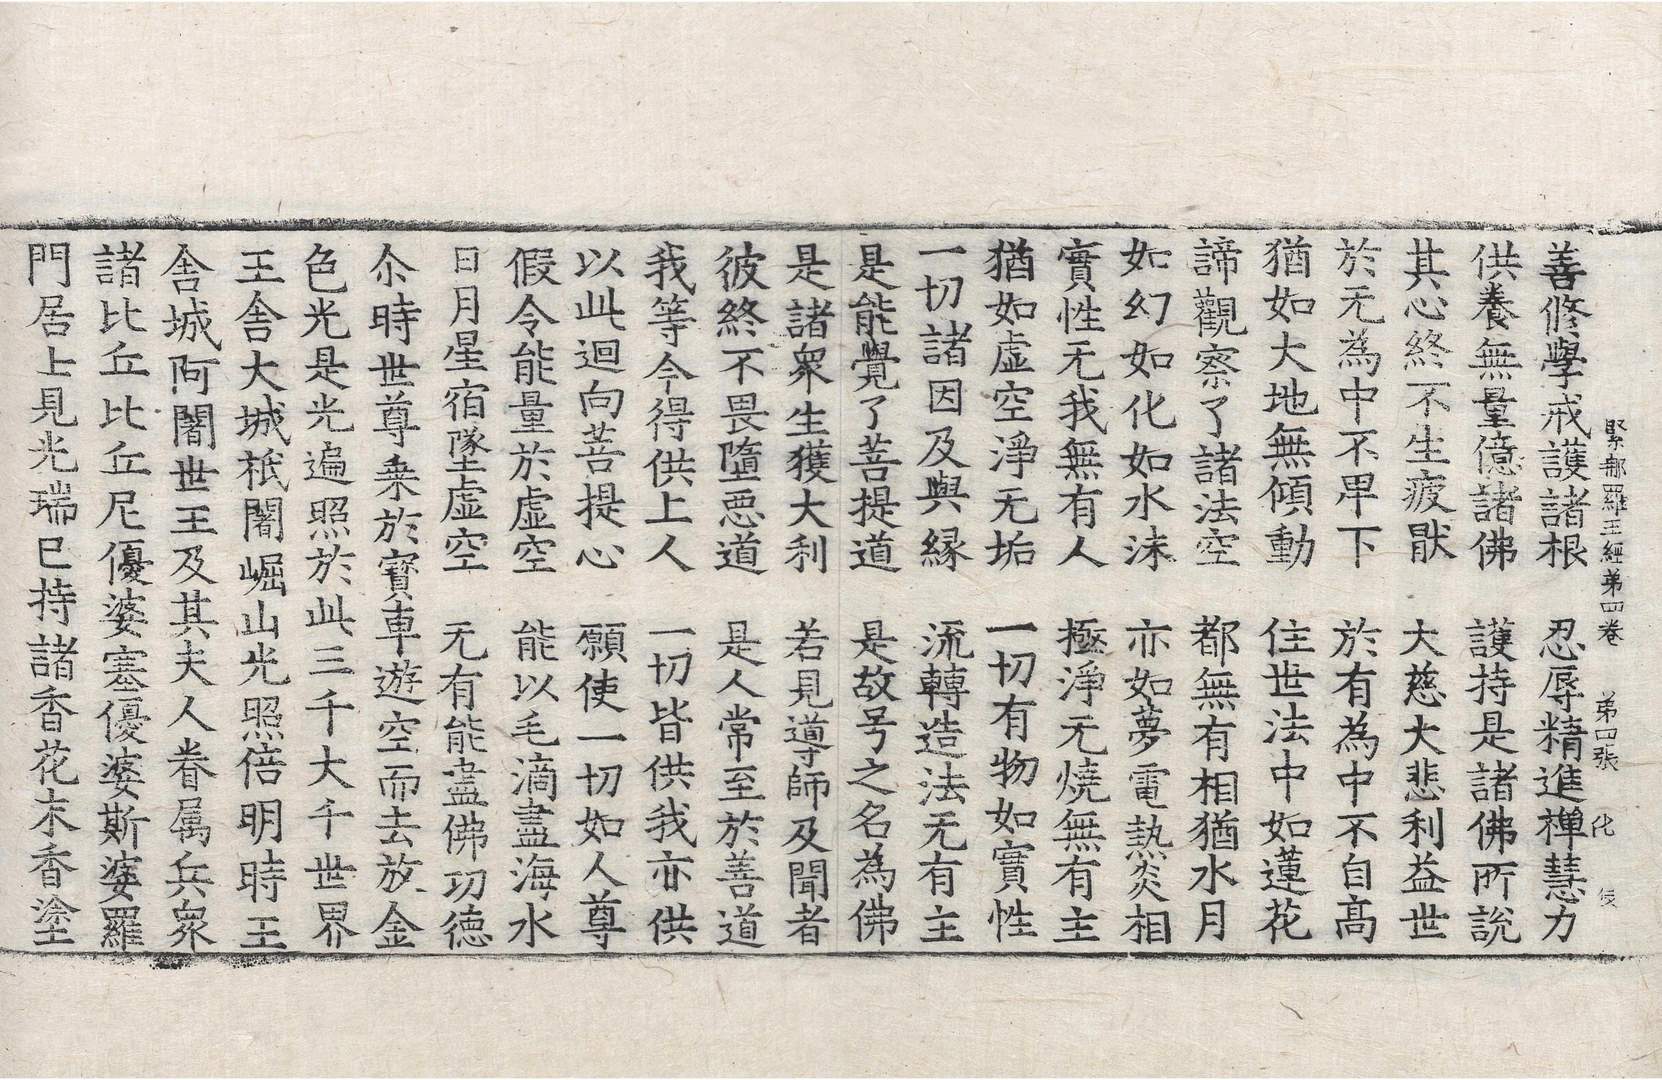 緊那羅王經第四卷　第四張　化
善修學戒護諸根　忍辱精進禪慧力
供養無量億諸佛　護持是諸佛所說
其心終不生疲猒　大慈大悲利益世
於无為中不卑下　於有為中不自高
猶如大地無傾動　住世法中如蓮花
諦觀察了諸法空　都無有相猶水月
如幻如化如水沫　亦如夢電熱炎相
實性无我無有人　極淨无燒無有主
猶如虛空淨无垢　一切有物如實性
一切諸因及與緣　流轉造法无有主
是能覺了菩提道　是故号之名為佛
是諸衆生獲大利　若見導師及聞者
彼終不畏墮惡道　是人常至於善道
我等今得供上人　一切皆供我亦供
以此迴向菩提心　願使一切如人尊
假令能量於虛空　能以毛滴盡海水
日月星宿墜虛空　无有能盡佛功德
尒時世尊乗於寶車遊空而去放金
色光是光遍照於此三千大千世界
王舍大城祇闍崛山光照倍明時王
舍城阿闍世王及其夫人眷属兵衆
諸比丘比丘尼優婆塞優婆斯婆羅
門居士見光瑞已持諸香花末香塗